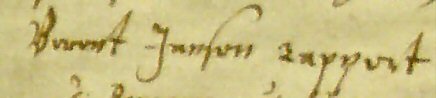 Berent Janson rapport